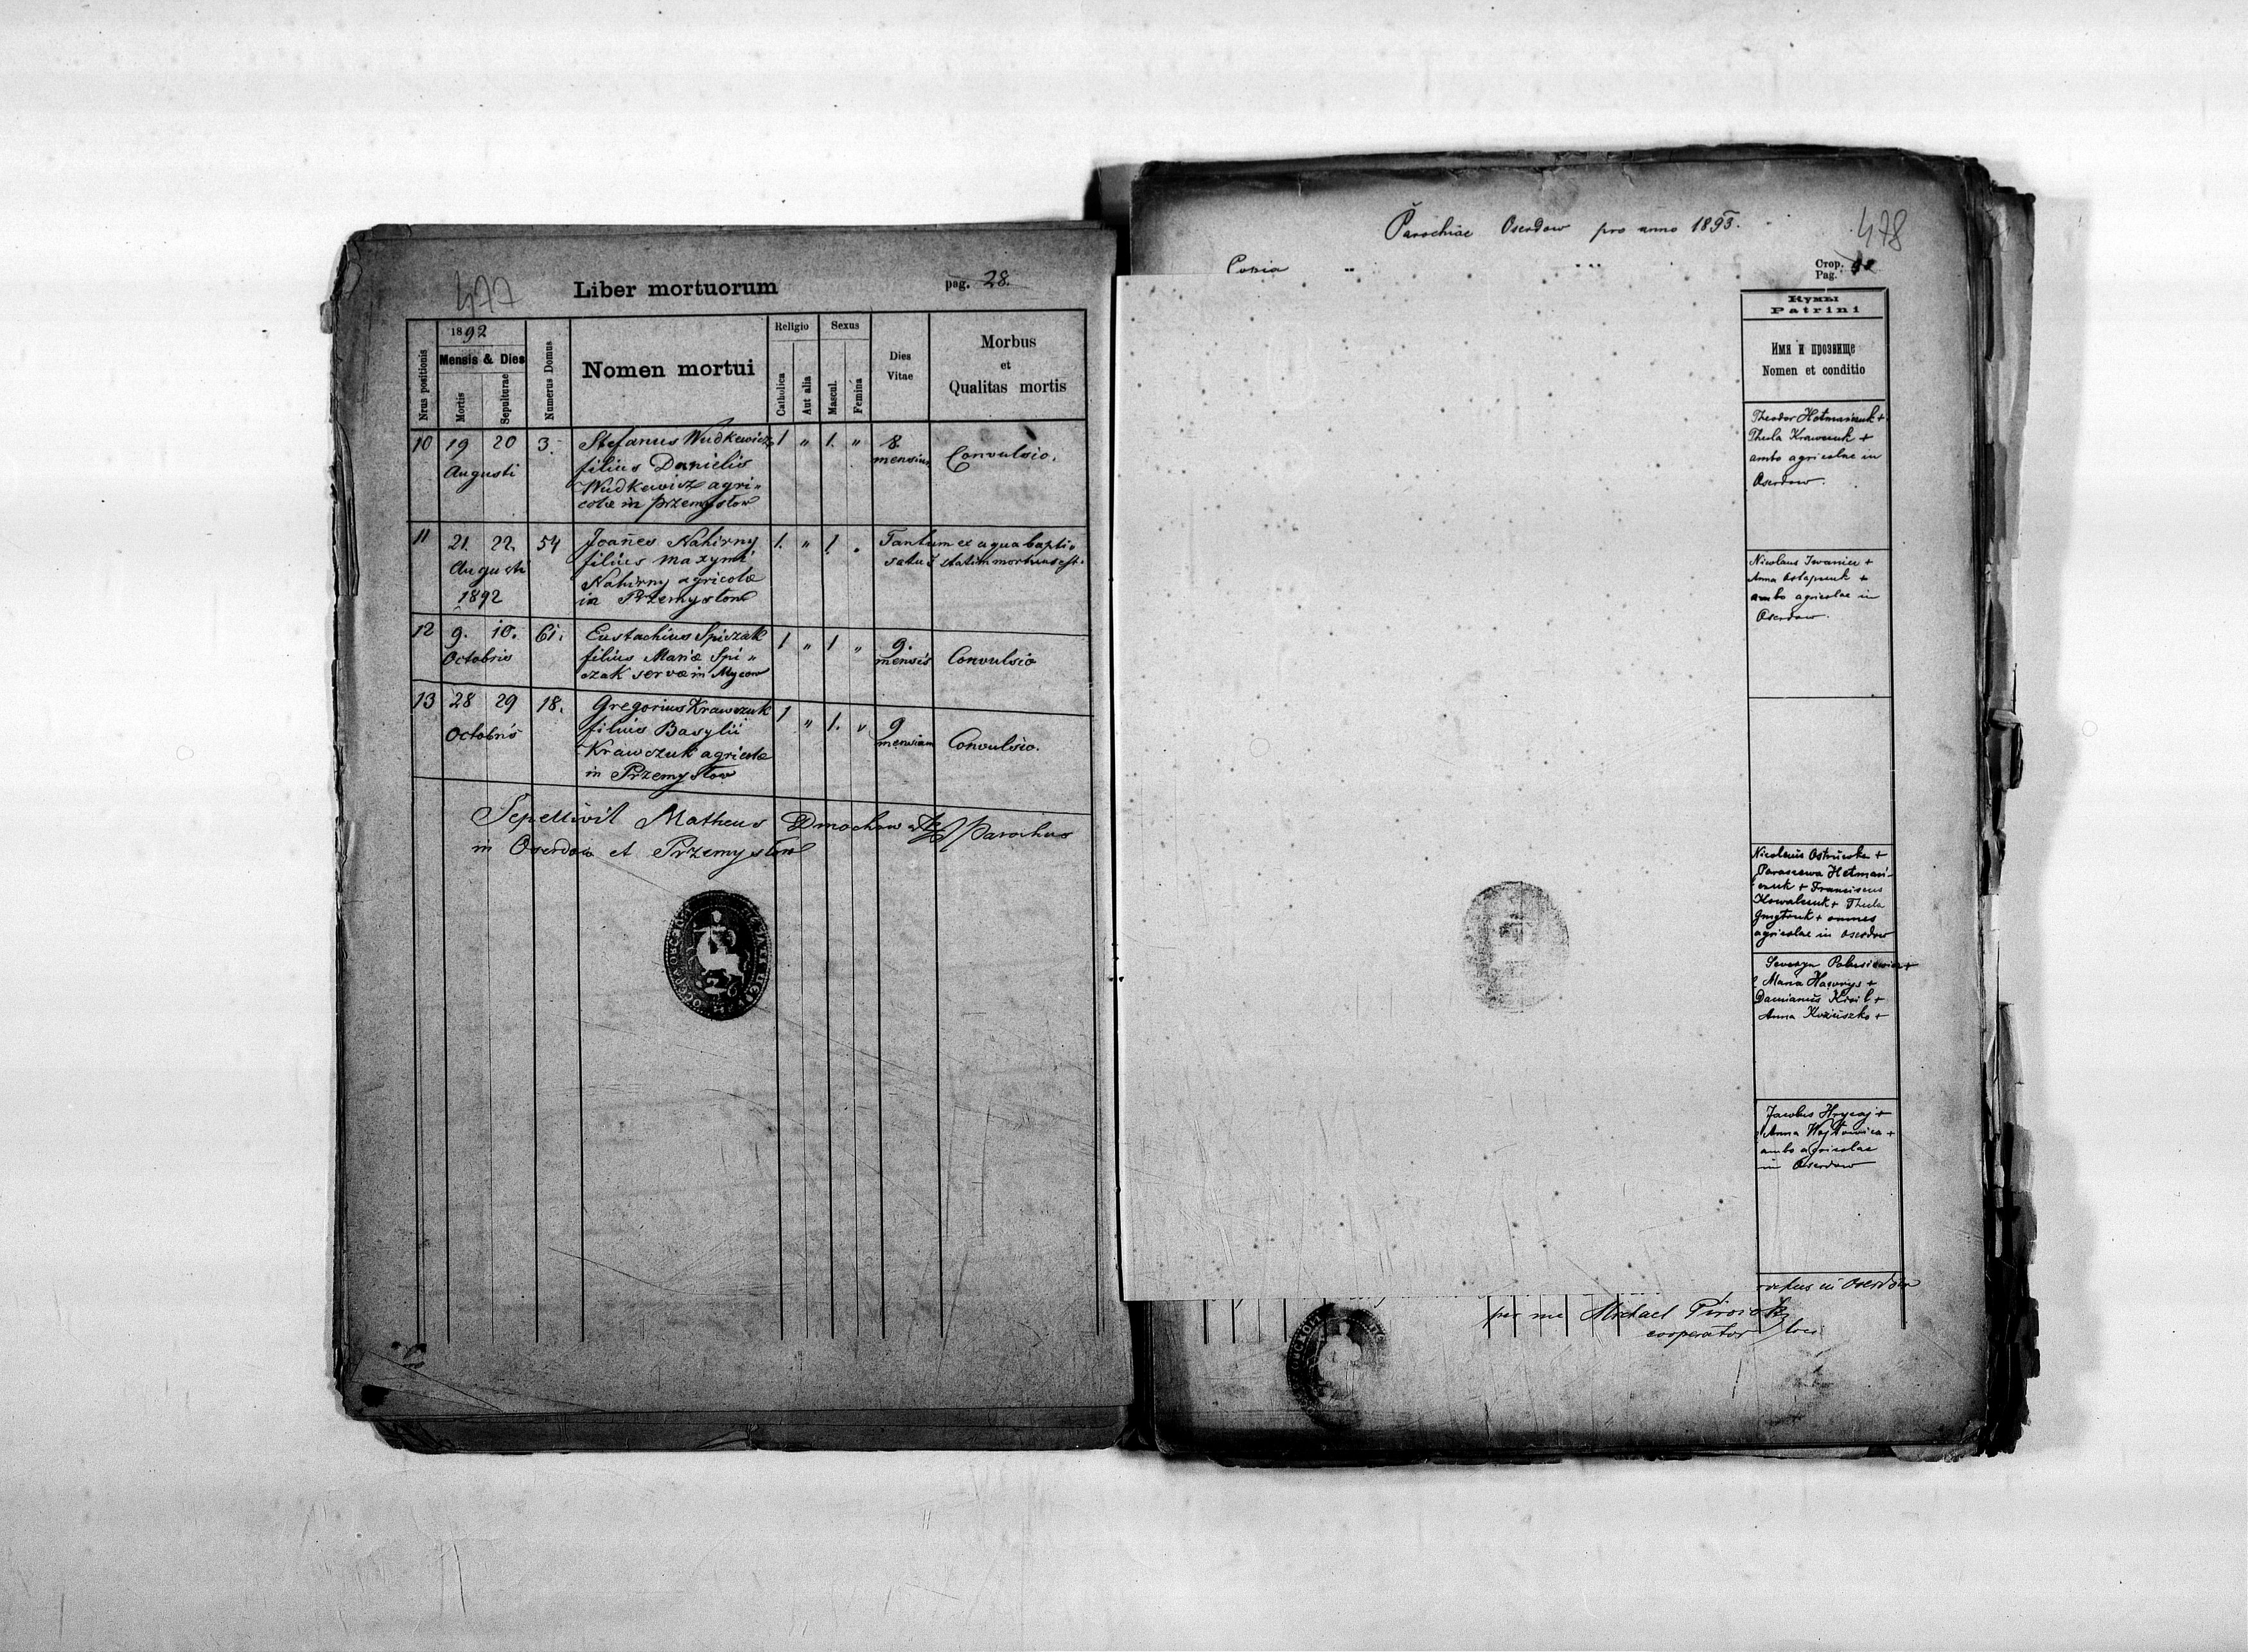 477
Liber mortuorum
pag. 28.
Nrus positionis
1892
Mensis & Dies
Mortis
Sepulturae
Numerus Domus
Nomen mortui
Religio
Catholica
Aut alia
Sexus
Mascul.
Femina
Dies
Vitae
Morbus
et
Qualitas mortis
10 19 20 3. Stefanus Wudkewicz 1 " 1. " 8.
Augusti filius Danielis mensium Convulsio.
Wudkewicz agri"
colae in Przemysłow
11 21. 22. 54 Joañes Nahirny 1. " 1. " Tantum ex aqua bapti"
Augusti filius Maxymi satus statim mortuus est.
1892 Nahirny agricolae
in Przemysłow
12 9. 10. 61. Eustachius Spiszak 1 " 1 " 9.
Octobris filius Mariae Spi" mensis Convulsio
szak servae in Mycow
13 28 29 18. Gregorius Krawczuk 1 " 1. " 9
Octobris filius Basylii mensium Convulsio.
Krawczuk agricolae
in Przemysłow
Sepelivit Matheus Parochus
in Oserdow et Przemysłow
Parochiae Oserdow pro anno 1893.
478
Copia " "
Стор.
Pag.
Кумы
Patrini
Имя и прозвище
Nomen et conditio
Theodor Hetmańczuk +
Thecla Krawczuk +
ambo agricolae in
Oserdow.
Nicolaus Iwaniec +
Anna Ostapczuk +
ambo agricolae in
Oserdow.
Nicolaus +
Parascewa Hetmań-
czuk + Franciscus
Kowalczuk + Thecla
+ omnes
agricolae in Oserdow
Seweryn +
Maria +
Damianus +
Anna +
Jacobus Hrycaj +
Anna Wojtowicz +
ambo agricolae
in Oserdow
in Oserdow
per me Michael
cooperator loci